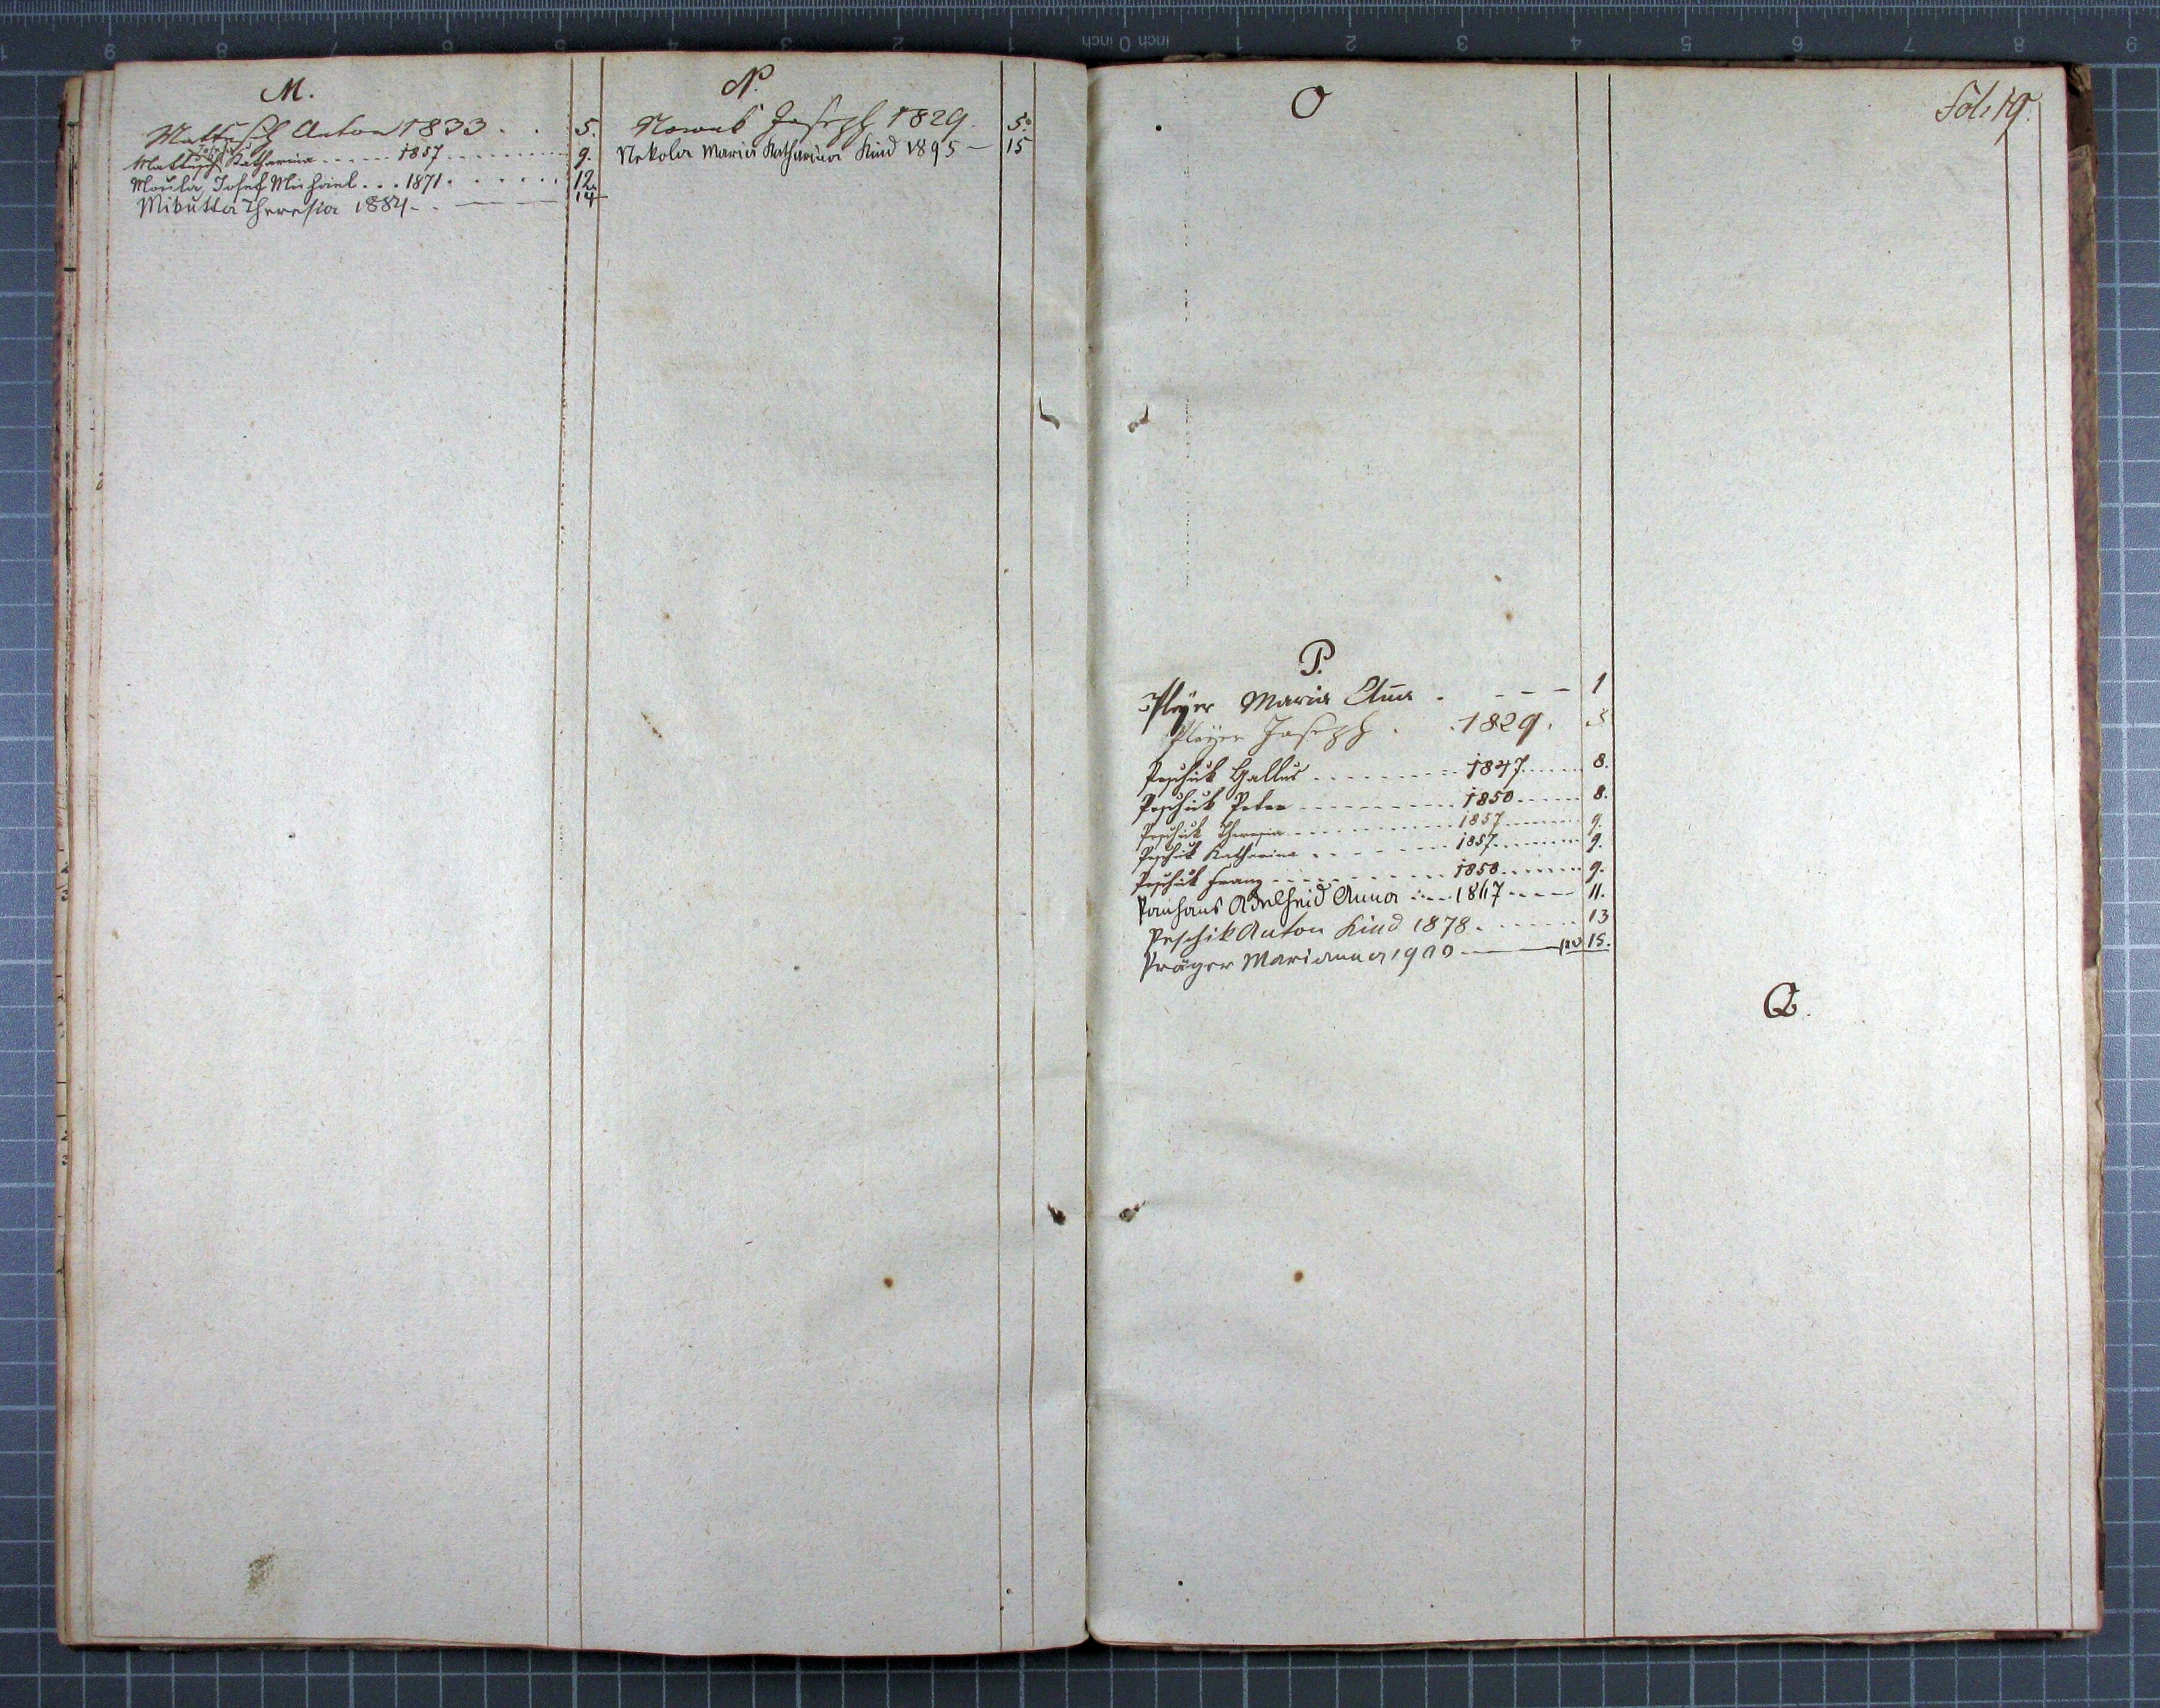 M.
Mattusch Anton 1833 . . 5.
Josepha
Mattusch Katharina ..... 1857 ......... 9.
Moula, Josef Michael ... 1871 ...... 12.
Mikutta Theresia 1884 - 14
N.
Nowak Joseph 1829. 5.
Nekola Maria Katharina Kind 1895 - 15
O
Fol. 19.
P.
Pleÿer Maria Aña - - - - 1
Pleÿer Joseph . . 1829. 5
Peschik Gallus ......... 1847 ..... 8.
Peschik Peter .......... 1850 ..... 8.
Peschik Theresia .......... 1857 ..... 9.
Peschik Katharina ........ 1857 ..... 9.
Peschik Franz .......... 1858 ..... 9.
Panhans Adelheid Anna .... 1867 .... 11.
Peschik Anton Kind 1878 ...... 13
Präger Marianna 1900 - 15.
Q.